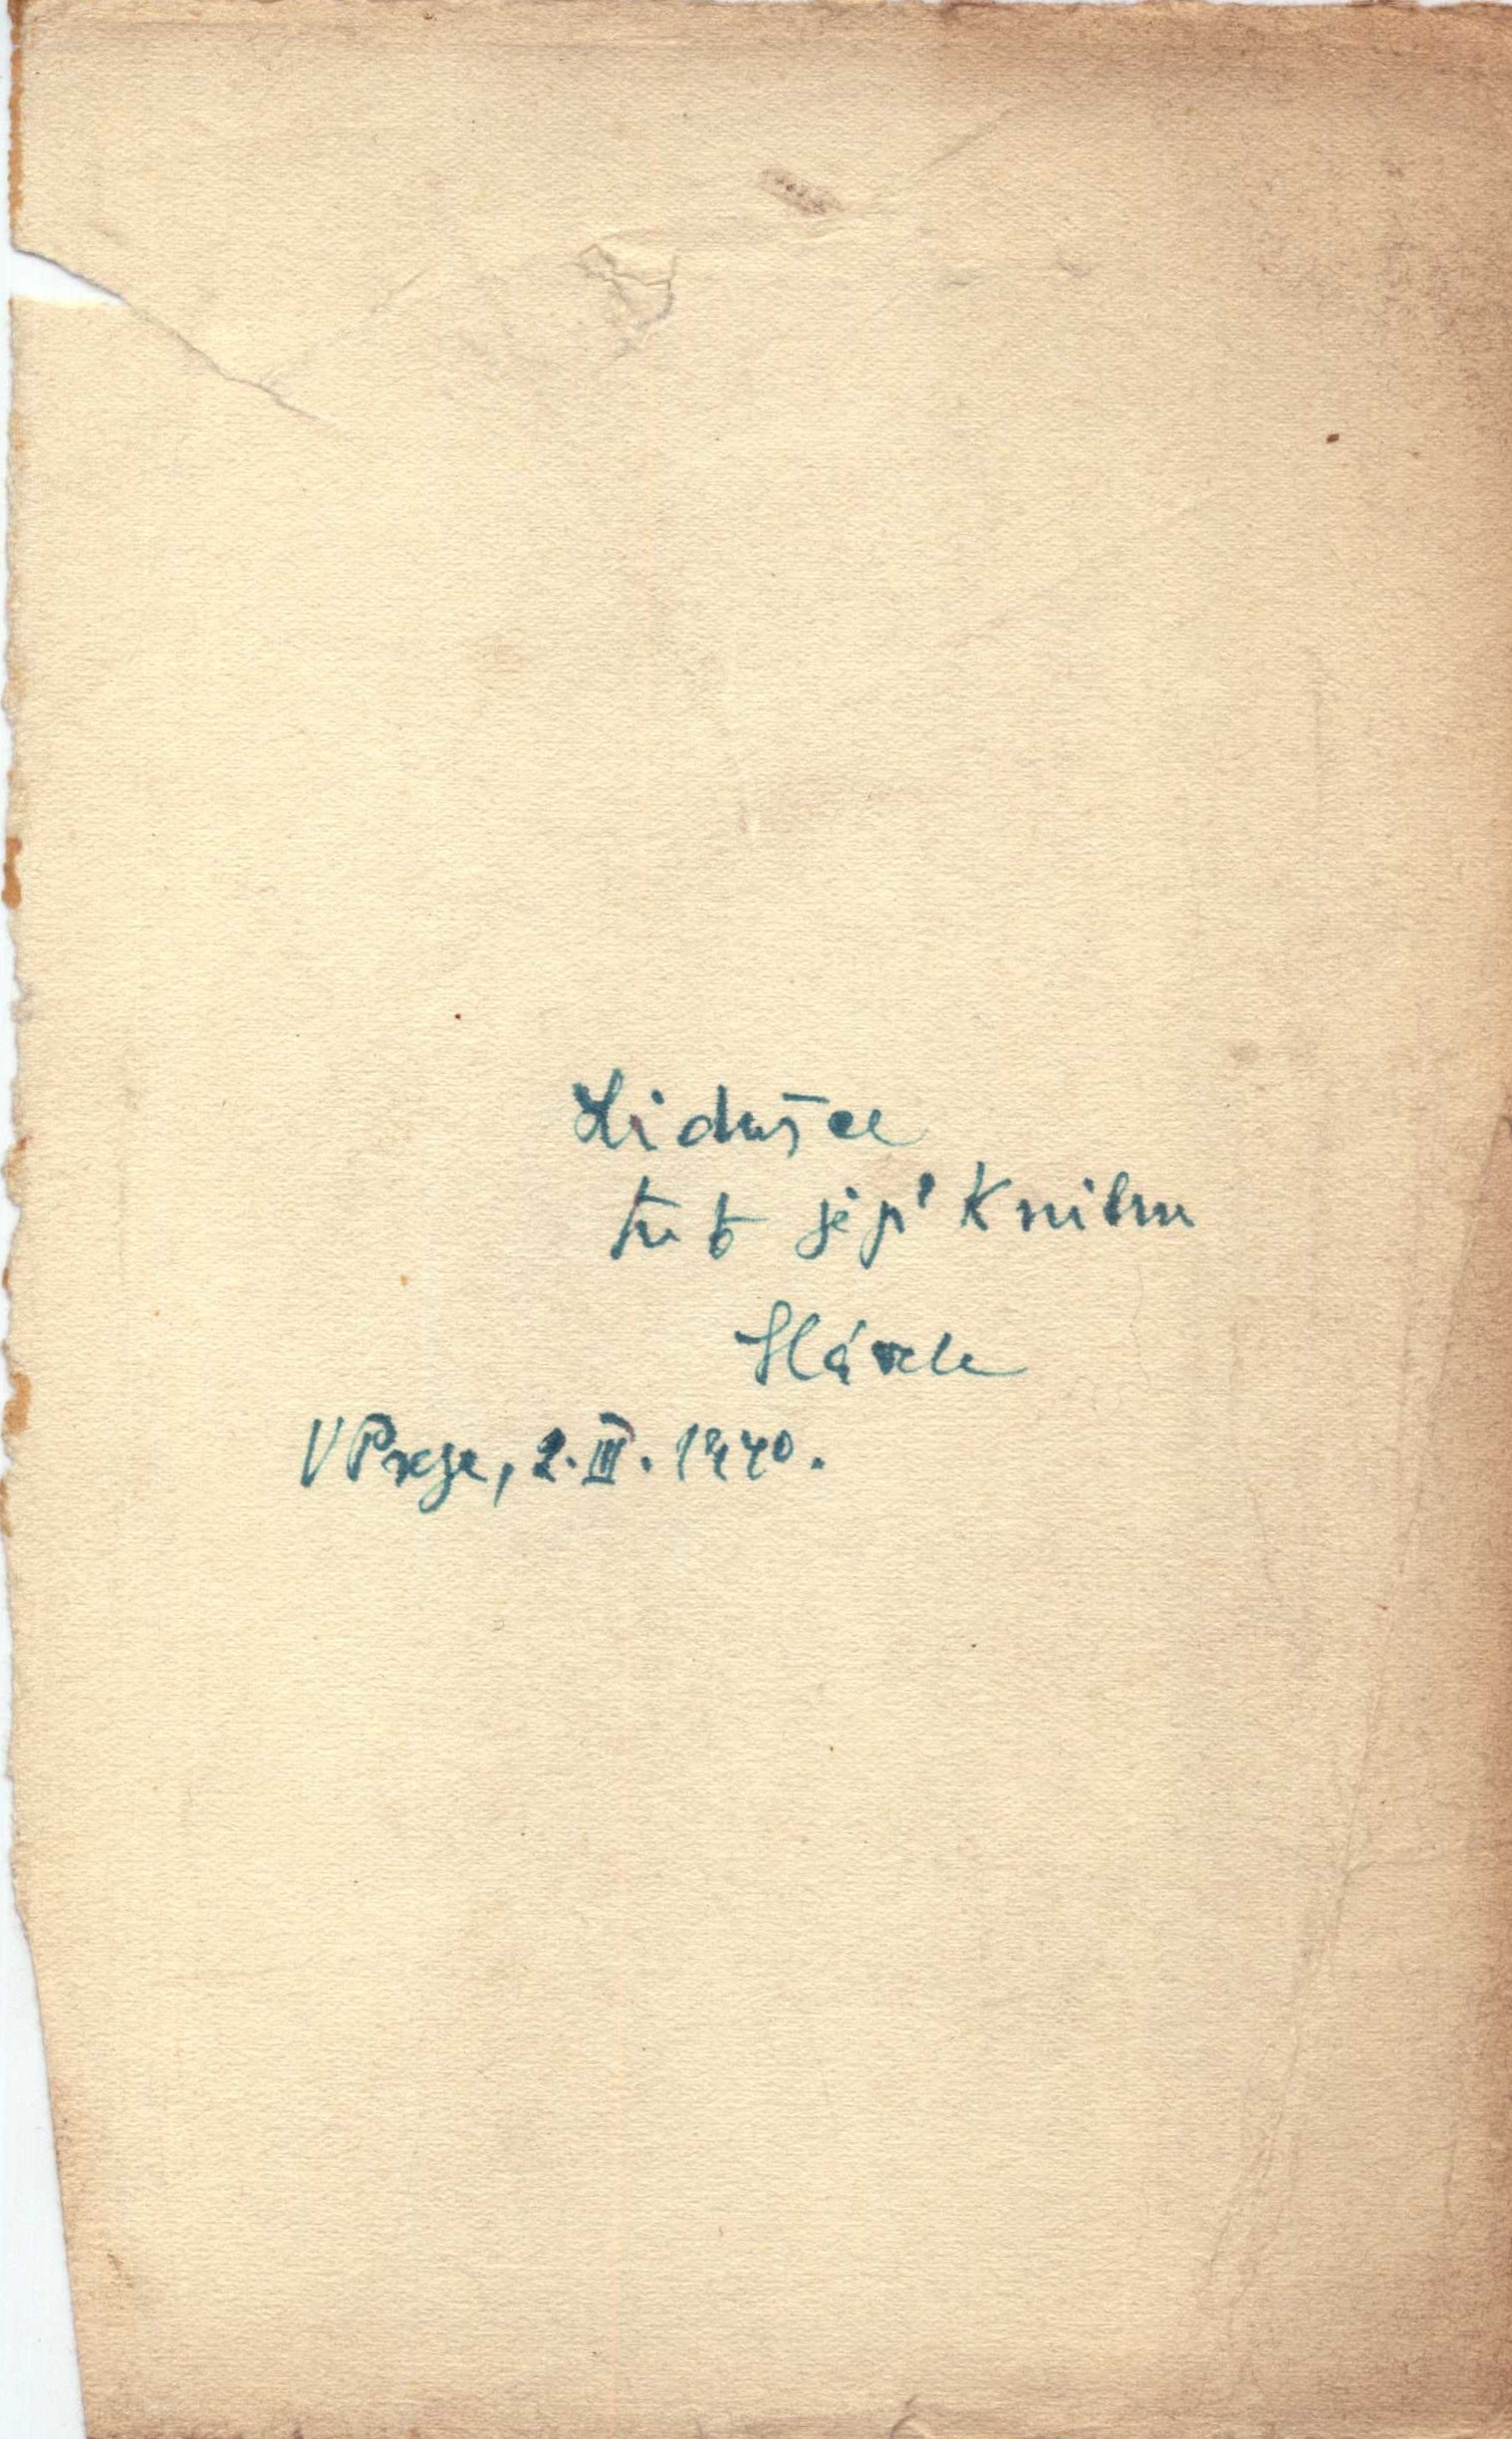 Lidušce
tuto její knihu
Slávek
V Praze, 2. III. 1940.